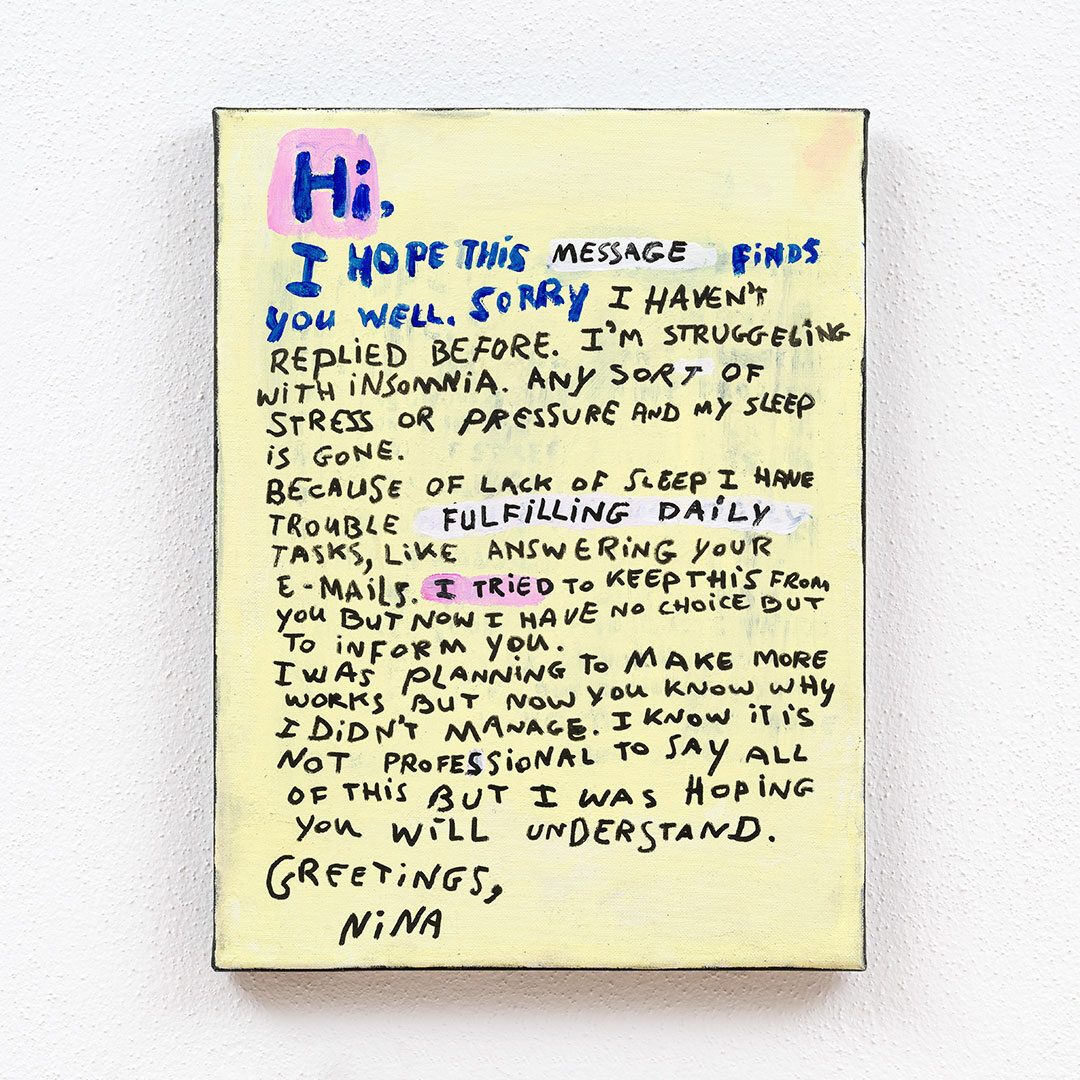 Hi,
I HOPE THiS MESSAGE FiNDS
YOU WELL. SORRY I HAVEN'T
REPLiED BEFORE. I'M STRUGGELiNG
WiTH iNSOMNiA. ANY SORT OF
STRESS OR PRESSURE AND MY SLEEP
iS GONE.
BECAUSE OF LACK OF SLEEP I HAVE
TROUBLE FULFiLLING DAiLY
TASKS, LiKE ANSWERiNG YOUR
E-MAiLS. I TRiED TO KEEP THiS FROM
YOU BUT NOW I HAVE NO CHOiCE BUT
TO iNFORM YOU.
I WAS PLANNiNG TO MAKE MORE
WORKS BUT NOW YOU KNOW WHY
I DiDN'T MANAGE. I KNOW iT iS
NOT PROFESSiONAL TO SAY ALL
OF THiS BUT I WAS HOPiNG
YOU WiLL UNDERSTAND.
GREETiNGS,
NiNA